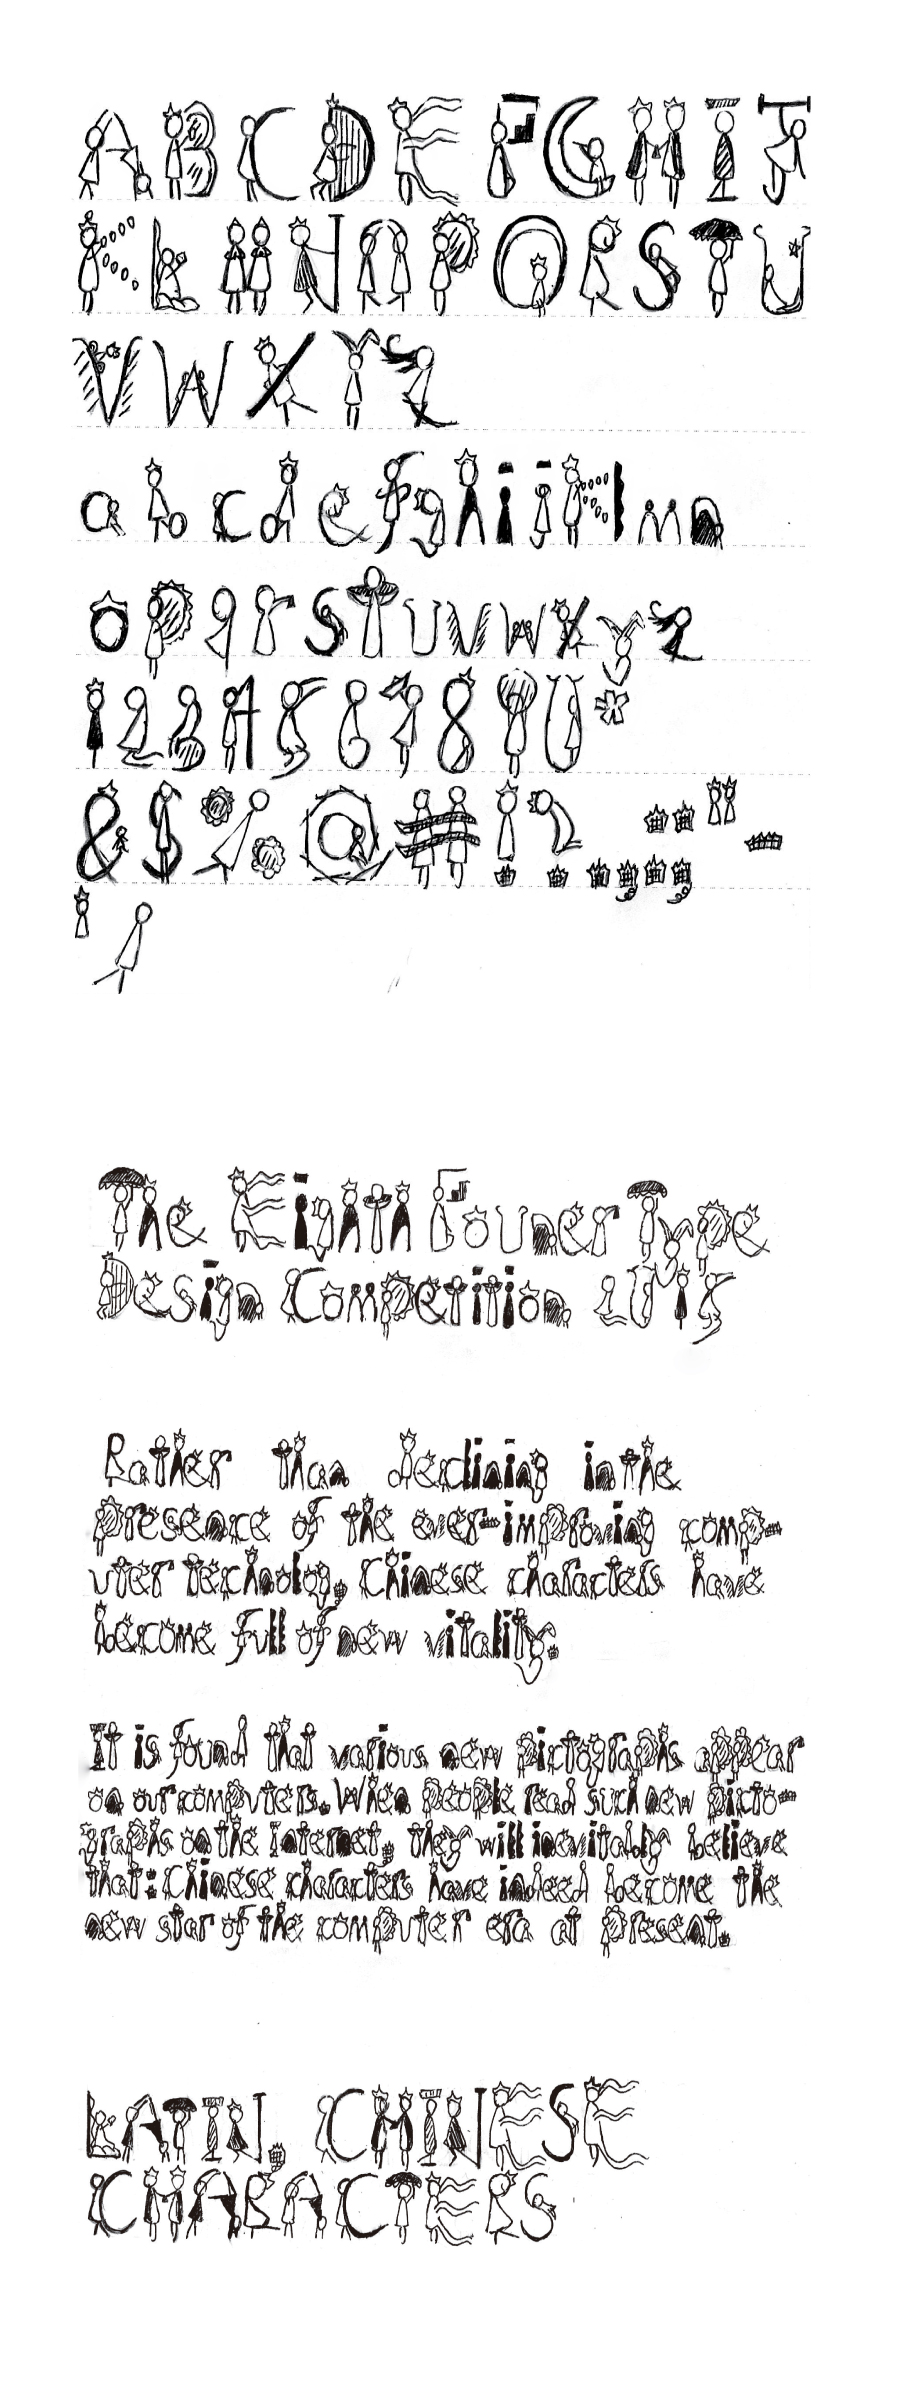 A B C D E F G H I J
K L M N O P Q R S T U
V W X Y Z
a b c d e f g h i j k l m n
o p q r s t u v w x y z
1 2 3 4 5 6 7 8 9 0 *
& $ % @ # ! ? . , : ; " -
' /
The Eighth Founer Type
Design Competition 2015
Rather than declining in the
presence of the ever-improving comp-
uter technolog, Chinese characters have
become full of new vitality.
It is found that various new pictographs appear
on our computers. When people read such new picto-
graphs on the Internet, they will inevitably believe
that: Chinese characters have indeed become the
new star of the computer era at present.
LATIN, CHINESE
CHARACTERS